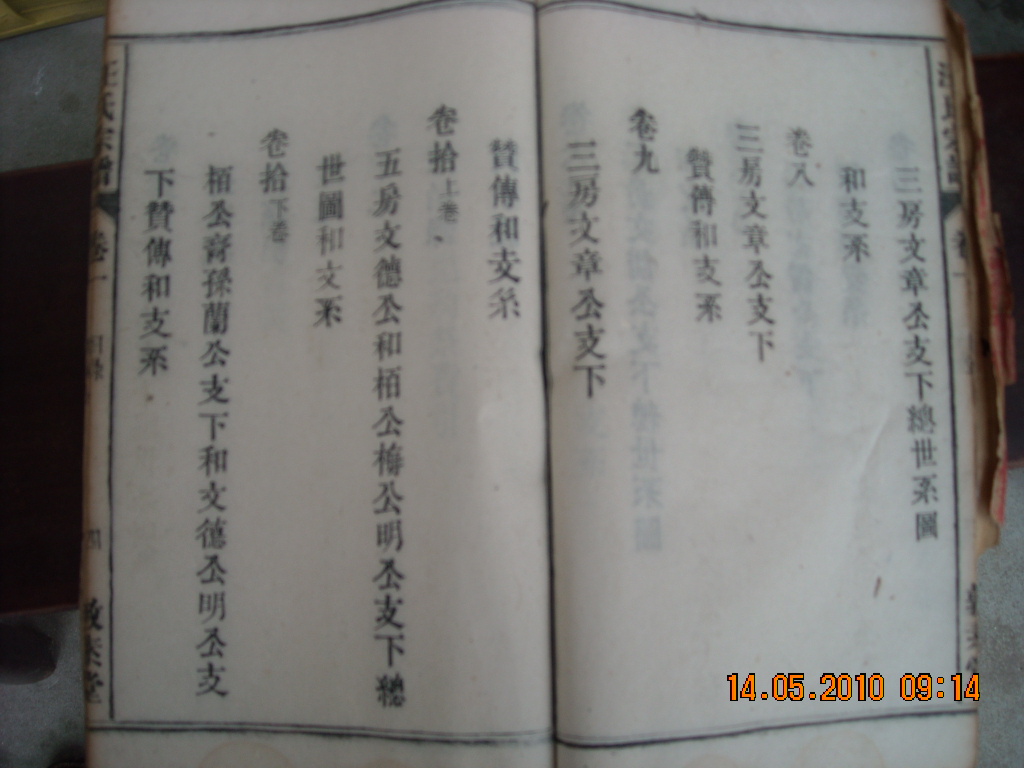 三房文章公支下總世系圖
和支系
卷八
三房文章公支下
贊傳和支系
卷九
三房文章公支下
贊傳和支系
卷拾上卷
五房文德公和栢公梅公明公支下總
世圖和文系
卷拾下卷
栢公齊孫蘭公支下和文德公明公支
下贊傳和支系
氏宗譜
卷一
四
敦本堂
14.05.2010 09:14